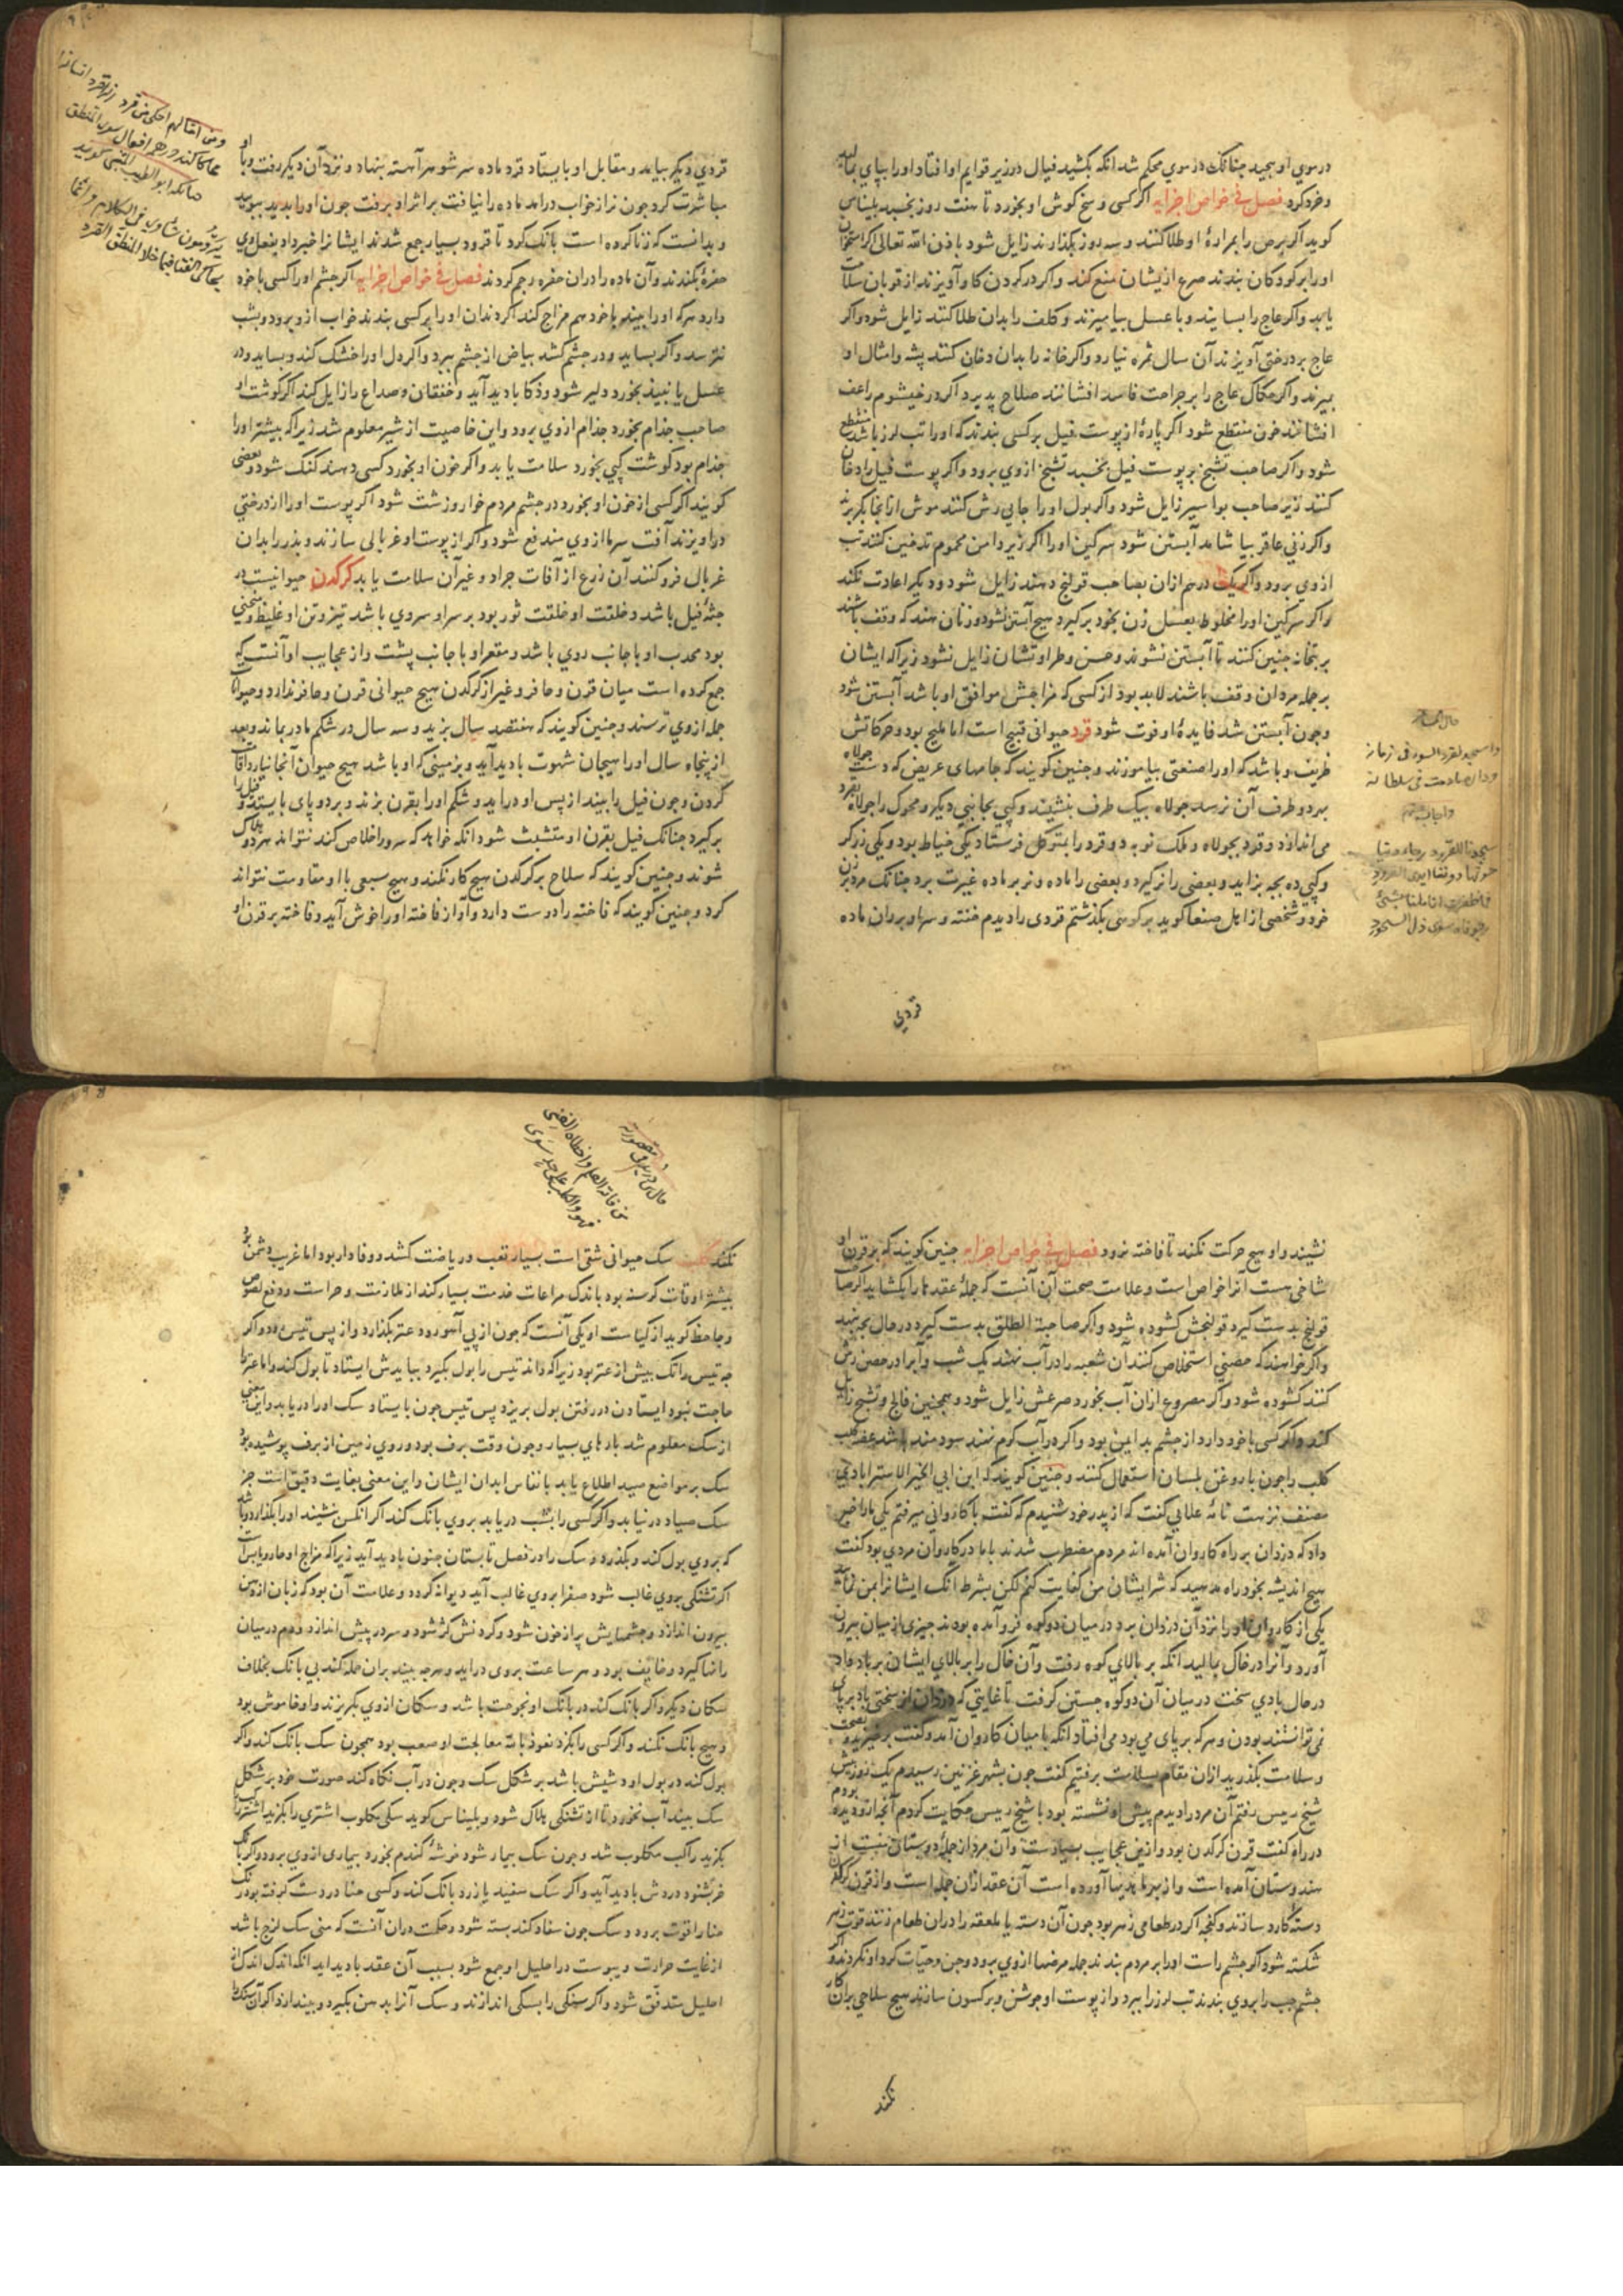 در موي او بچيد چنانک در موي محکم شد انکه بکشيد فيال در زير قوايم او افتاد او را بپاي بماليد
و خرد کرد فصل في خواص اجزايه اکر کسى وسخ کوش او بخورد تا هفت روز نخسبد بليناس
کويد اکر برص را بمرارة او طلا کنند و سه روز بکذارند زايل شود باذن الله تعالى اکر استخوان
او را بر کودکان بندند صرع از ايشان منع کند و اکر در کردن کاو آويزند از قوبان سلامت
يابد و اکر عاج را بسايند و با عسل بياميزند و کلف را بدان طلا کنند زايل شود و اکر
عاج بر درختى آويزند آن سال ثمره نيارد و اکر خانه را بدان دخان کنند پشه و امثال او
بميرند و اکر حکاک عاج را بر جراحت فاسد افشانند صلاح پذيرد اکر در خيشوم راعف
افشانند خون منقطع شود اکر پارۀ از پوست فيل بر کسى بندند که او را تب لرز باشد منقطع
شود و اکر صاحب تشنج بر پوست فيل بخسبد تشنج از وي برود و اکر پوست فيل را دخان
کنند زير صاحب بواسير زايل شود و اکر بول او را جايي رش کنند موش از آنجا بکريزد
و اکر زني عاقر بياشامد آبستن شود سرکين او را اکر زير دامن محموم تدخين کنند تب
از وي برود و اکر يک درم ازان بصاحب قولنج دهند زايل شود و ديکر اعادت نکند
و اکر سرکين او را مخلوط بعسل زن بخود برکيرد هيچ آبستن نشود و زنان هند که وقف باشند
بر بتخانه چنين کنند تا آبستن نشوند و حسن و طراوتشان زايل نشود زيرا که ايشان
بر جمله مردان وقف باشند لابد بود از کسى که مزاجش موافق او باشد آبستن شود
و چون آبستن شد فايدۀ او فوت شود قرد حيوانى قبيح است اما مليح بود و حرکاتش
ظريف و باشد که او را صنعتى بياموزند و چنين کويند که جامهاى عريض که دست جولاه
بهر دو طرف آن نرسد جولاه بيک طرف بنشيند و کپي بجانبى ديکر و محوک را جولاه بقرد
مى اندازد و قرد بجولاه و ملک نوبه دو قرد را بمتوکل فرستاد يکى خياط بود و يکى زرکر
و کپي ده بچه بزايد و بعضى را نر کيرد و بعضى را ماده و نر بر ماده غيرت برد چنانک مرد بر زن
خود و شخصى از اهل صنعا کويد بر کوهى بکذشتم قردى را ديدم خفته و سر او بر ران ماده
قردي
قردي ديکر بيامد و مقابل او بايستاد قرد ماده سر شوهر آهسته بنهاد و نزد آن ديکر رفت و با او
مباشرت کرد چون نر از خواب درامد ماده را نيافت بر اثر او برفت چون او را بديد ببوييد
و بدانست که زنا کرده است بانک کرد تا قرود بسيار جمع شدند ايشانرا خبر داد بفعل وي
حفرۀ بکندند و آن ماده را دران حفره رجم کردند فصل في خواص اجزايه اکر چشم او را کسى با خود
دارد هرکه او را بيند با خود هم مزاج کند اکر دندان او را بر کسى بندند خواب از و برود و بشب
نترسد و اکر بسايد و در چشم کشد بياض از چشم ببرد و اکر دل او را خشک کند و بسايد و در
عسل يا نبيذ بخورد دلير شود و ذکا باديد آيد و خفقان و صداع را زايل کند اکر کوشت او
صاحب جذام بخورد جذام از وي برود و اين خاصيت از شير معلوم شد زيرا که بيشتر او را
جذام بود کوشت کپي بخورد سلامت يابد و اکر خون او بخورد کسى دهند کنک شود و بعضى
کويند اکر کسى از خون او بخورد در چشم مردم خوار و زشت شود اکر پوست او را از درختي
در اويزند آفت سرما از وي مندفع شود و اکر از پوست او غربالى سازند و بذر را بدان
غربال فرو کنند آن زرع از آفات جراد و غير آن سلامت يابد کرکدن حيوانيست در
جثۀ فيل باشد و خلقت او خلقت ثور بود بر سر او سروي باشد تيز و تن او غليظ و منحنى
بود محدب او با جانب روي باشد و مقعر او با جانب پشت و از عجايب او آنست که
جمع کرده است ميان قرن و حافر و غير از کرکدن هيچ حيوانى قرن و حافر ندارد و حيوانات
جمله از وي ترسند و چنين کويند که هفتصد سال بزيد و سه سال در شکم مادر بماند و بعد
از پنجاه سال او را هيجان شهوت باديد آيد و بزمينى که او باشد هيچ حيوان آنجا نيارد اقامت
کردن و چون فيل را بيند از پس او درايد و شکم او را بقرن بزند و بر دو پاى بايستد و فيل را
برکيرد چنانک فيل بقرن او متشبث شود انکه خواهد که سرو را خلاص کند نتواند هر دو هلاک
شوند و چنين کويند که سلاح بر کرکدن هيچ کار نکند و هيچ سبعى با او مقاومت نتواند
کرد و چنين کويند که فاخته را دوست دارد و آواز فاخته او را خوش آيد و فاخته بر قرن او
نشيند و او هيچ حرکت نکند تا فاخته نرود فصل في خواص اجزايه چنين کويند که بر قرن او
شاخى هست آنرا خواص است و علامت صحت آن آنست که جملۀ عقدها را بکشايد اکر صاحب
قولنج بدست کيرد قولنجش کشوده شود و اکر صاحبة الطلق بدست کيرد در حال بچه بنهد
و اکر خواهند که حصنى استخلاص کنند آن شعبه را در آب نهند يک شب و آبرا در حصن رش
کنند کشوده شود و اکر مصروع ازان آب بخورد صرعش زايل شود و همچنين فالج و تشنج زايل
کند و اکر کسى با خود دارد از چشم بد ايمن بود و اکر در آب کرم نهند سودمند باشد عضه کلب
کلب را چون با روغن بلسان استعمال کنند و چنين کويند که ابن ابي الخير الاستراباذي
مصنف نزهت نامه علائي کفت که از پدر خود شنيدم که کفت با کارواني ميرفتم يکى ما را خبر
داد که دزدان بر راه کاروان آمده اند مردم مضطرب شدند با ما در کاروان مردي بود کفت
هيچ انديشه بخود راه مدهيد که شر ايشان من کفايت کنم لکن بشرط انک ايشانرا بمن نماييد
يکى از کاروان او را نزد آن دزدان برد در ميان دو کوه فرو آمده بودند چيزى از ميان بيرون
آورد و آنرا در خاک بماليد انکه بر بالاي کوه رفت و آن خاک را بر بالاي ايشان بر باد داد
در حال بادي سخت در ميان آن دو کوه جستن کرفت تا غايتي که دزدان از سختى باد بر پاى
نمى توانستند بودن و هرکه بر پاى مي بود مى افتاد انکه با ميان کاروان آمد و کفت برخيزيد و بصحت
و سلامت بکذريد ازان مقام بسلامت برفتيم کفت چون بشهر غزنين رسيدم يک روز پيش
شيخ رييس رفتم آن مرد را ديدم پيش او نشسته بود با شيخ رييس حکايت کردم آنچ ازو ديده بودم
در راه کفت قرن کرکدن بود و ازين عجايب بسيارست و آن مرد از جمله دوستان منست از
هندوستان آمده است و از بهر ما هديها آورده است آن عقد ازان جمله است و از قرن کرکدن
دسته کارد سازند و کفچه اکر در طعامى زهر بود چون آن دسته يا ملعقه را دران طعام زنند قوت زهر
شکسته شود اکر چشم راست او را بر مردم بندند جمله مرضها از وي برود و جن و حيّات کرد او نکردند و اکر
چشم چپ را بروي بندند تب لرز را ببرد و از پوست او جوشن و برکستوان سازند هيچ سلاحى بران کار
نکند
نکند کلب سک حيوانى شتى است بسيار تعب و رياضت کشد و وفادار بود اما غريب دشمن بود
بيشتر اوقات کرسنه بود باندک مراعات خدمت بسيار کند از ملازمت و حراست و دفع لصوص
و جاحظ کويد از کياست او يکى آنست که چون از پي آهو رود عنز بکذارد و از پس تيس دود و اکر
چه تيس را تک بيش از عنز بود زيرا که داند تيس را بول بکيرد ببايدش ايستاد تا بول کند و اما عنز را
حاجت نبود ايستادن در رفتن بول بريزد پس تيس چون بايستاد سک او را دريابد و اين معنى
از سک معلوم شد بارهاي بسيار و چون وقت برف بود و روي زمين از برف پوشيده بود
سک بر مواضع صيد اطلاع يابد بانفاس ابدان ايشان و اين معنى بغايت دقيق است جز
سک صياد درنيابد و اکر کسى را بشب دريابد بروي بانک کند اکر انکس بنشيند او را بکذارد و باشد
که بروي بول کند و بکذرد و سک را در فصل تابستان جنون باديد آيد زيرا که مزاج او حار و يابس است
اکر تشنکى بروي غالب شود صفرا بروي غالب آيد ديوانه کردد و علامت آن بود که زبان از دهن
بيرون اندازد و چشمهايش پر از خون شود و کردنش کژ شود و سر در پيش اندازد و دم در ميان
رانها کيرد و خايف بود و هر ساعت بروى درايد و هرچه بيند بران حمله کند بي بانک بخلاف
سکان ديکر و اکر بانک کند در بانک او بحوحت باشد و سکان ازوي بکريزند و او خاموش بود
و هيچ بانک نکند و اکر کسى را بکزد نعوذ بالله معالجت او صعب بود همچون سک بانک کند و اکر
بول کند در بول او دشيش باشد بر شکل سک و چون در آب نکاه کند صورت خود بر شکل
سک بيند آب نخورد تا از تشنکى هلاک شود و بليناس کويد سکى مکلوب اشتري را بکزيد اشتر راکب را
بکزيد راکب مکلوب شد و چون سک بيمار شود خوشۀ کندم بخورد بيمارى ازوي برود و اکر بانک
خر بشنود دردش باديد آيد و اکر سک سفيد يا زرد بانک کند و کسى حنا در دست کرفته بود رنک
حنا را قوت برود و سک چون سفاد کند بسته شود و حکمت دران آنست که منى سک لزج باشد
از غايت حرارت و يبوست در احليل او جمع شود بسبب آن عقد باديد ايد انکه اندک اندک از
احليل متدفق شود و اکر سنکى را بسکى اندازند و سک آنرا بدهن بکيرد و بيندازد اکر آن سنک را